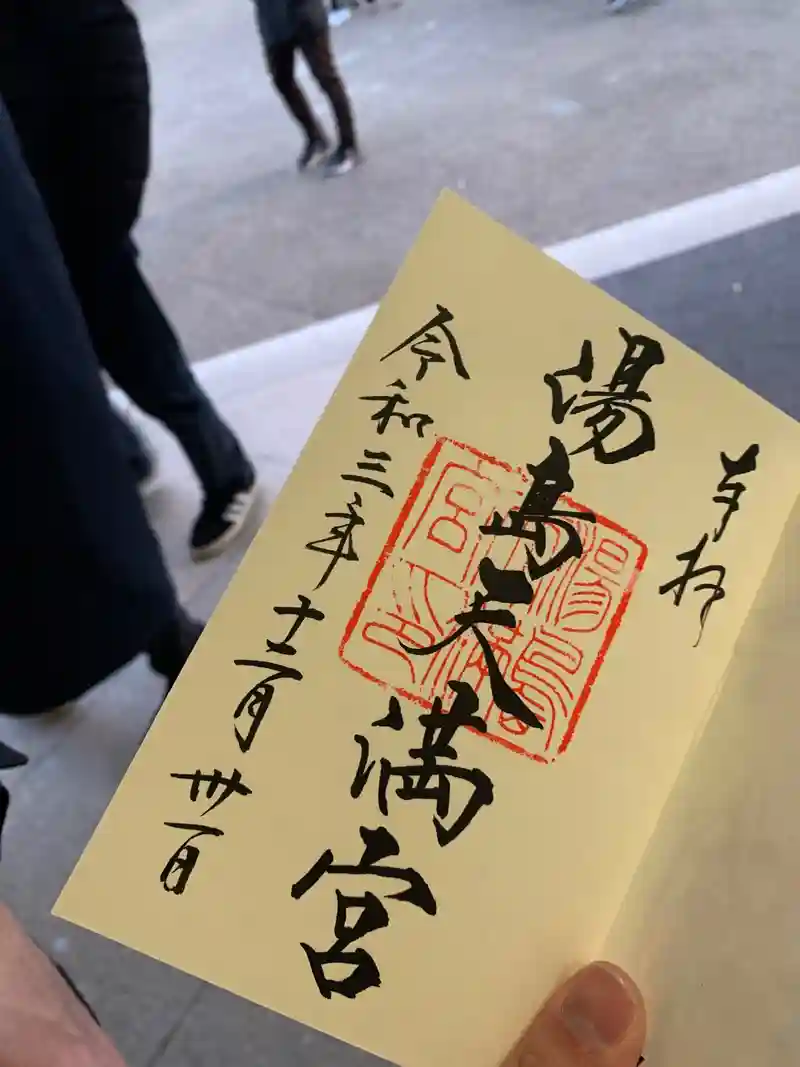 奉拝
湯島天満宮
令和三年十二月卅一日
湯島
天満
宮印